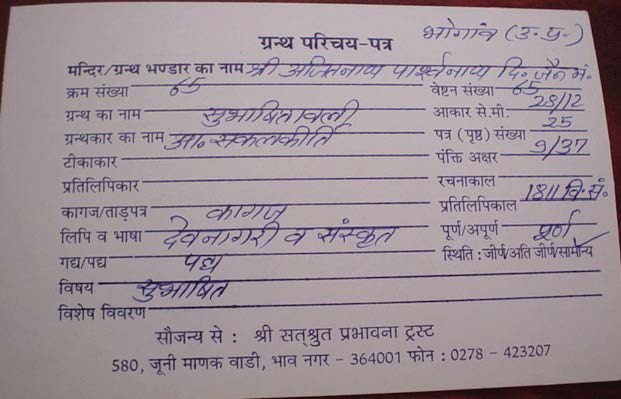 ग्रन्थ परिचय-पत्र भोगांव (उ.प्र.)
मन्दिर/ग्रन्थ भण्डार का नाम श्री अजितनाथ पार्श्वनाथ दि. जैन मं.
क्रम संख्या 65 वेष्टन संख्या 65
ग्रन्थ का नाम सुभाषितावली आकार से.मी. 28/12
ग्रन्थकार का नाम आ. सकलकीर्ति पत्र (पृष्ठ) संख्या 25
टीकाकार पंक्ति अक्षर 9/37
प्रतिलिपिकार रचनाकाल
कागज/ताड़पत्र कागज प्रतिलिपिकाल 1811 वि.सं.
लिपि व भाषा देवनागरी व संस्कृत पूर्ण/अपूर्ण पूर्ण
गद्य/पद्य पद्य स्थिति : जीर्ण/अति जीर्ण/सामान्य
विषय सुभाषित
विशेष विवरण
सौजन्य से : श्री सत्श्रुत प्रभावना ट्रस्ट
580, जूनी माणक वाडी, भाव नगर - 364001 फोन : 0278 - 423207